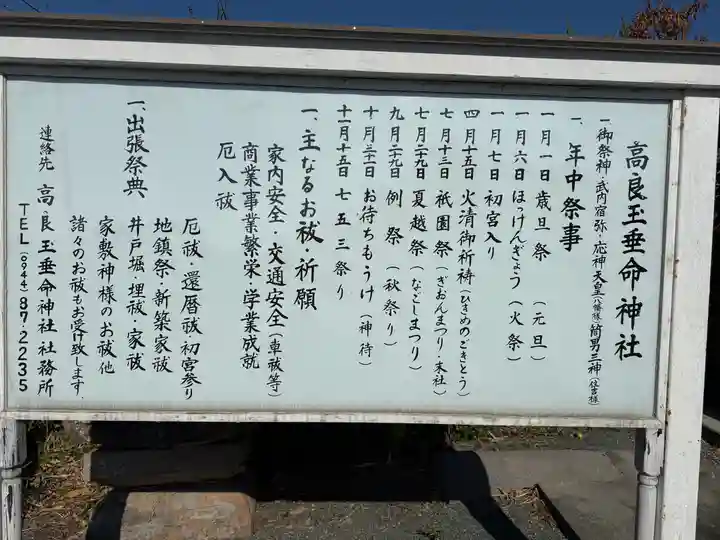 高良玉垂命神社
一、御祭神・武内宿弥・応神天皇(八幡様)筒男三神(住吉様)
一、年中祭事
一月一日 歳旦祭 (元旦)
一月六日 ほっけんぎょう (火祭)
一月七日 初宮入り
四月十五日 火清御祈祷 (ひきめのごきとう)
七月十三日 祇園祭 (ぎおんまつり・末社)
七月二十九日 夏越祭 (なごしまつり)
九月二十九日 例祭 (秋祭り)
十月三十一日 お待ちもうけ (神待)
十一月十五日 七五三祭り
一、主なるお祓・祈願
家内安全・交通安全(車祓等)
商業事業繁栄・学業成就
厄入祓
厄祓・還暦祓・初宮参り
一、出張祭典
地鎮祭・新築家祓
井戸堀・埋祓・家祓
家敷神様のお祓他
諸々のお祓もお受け致します.
連絡先 高良玉垂命神社社務所
TEL(0944)87.2235